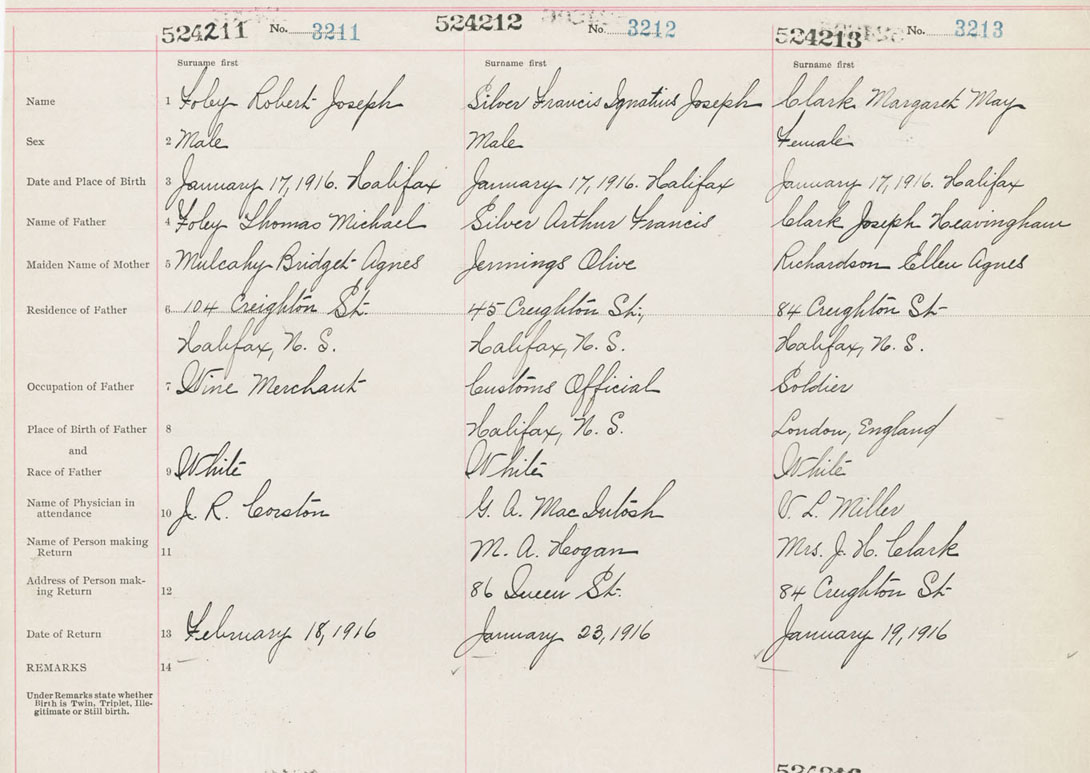 524211 No. 3211 524212 No. 3212 524213 No. 3213
Surname first Surname first Surname first
Name 1 Foley Robert Joseph Silver Francis Ignatius Joseph Clark Margaret May
Sex 2 Male Male Female
Date and Place of Birth 3 January 17, 1916. Halifax January 17, 1916. Halifax January 17, 1916. Halifax
Name of Father 4 Foley Thomas Michael Silver Arthur Francis Clark Joseph Heavingham
Maiden Name of Mother 5 Mulcahy Bridget Agnes Jennings Olive Richardson Ellen Agnes
Residence of Father 6 104 Creighton St. 45 Creighton St., 84 Creighton St
Halifax, N. S. Halifax, N. S. Halifax, N. S.
Occupation of Father 7 Wine Merchant Customs Official Soldier
Place of Birth of Father 8 Halifax, N. S. London, England
and
Race of Father 9 White White White
Name of Physician in
attendance 10 J. R. Corston G. A. MacIntosh V. L. Miller
Name of Person making
Return 11 M. A. Hogan Mrs. J. H. Clark
Address of Person mak-
ing Return 12 86 Queen St. 84 Creighton St
Date of Return 13 February 18, 1916 January 23, 1916 January 19, 1916
REMARKS 14
Under Remarks state whether
Birth is Twin, Triplet, Ille-
gitimate or Still birth.